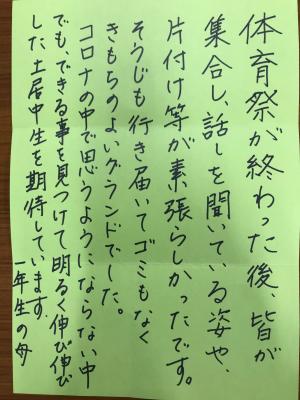 体育祭が終わった後、皆が
集合し、話しを聞いている姿や、
片付け等が素張らしかったです。
そうじも行き届いてゴミもなく
きもちのよいグランドでした。
コロナの中で思うようにならない中
でも、できる事を見つけて明るく伸び伸び
した、土居中生を期待しています。
一年生の母